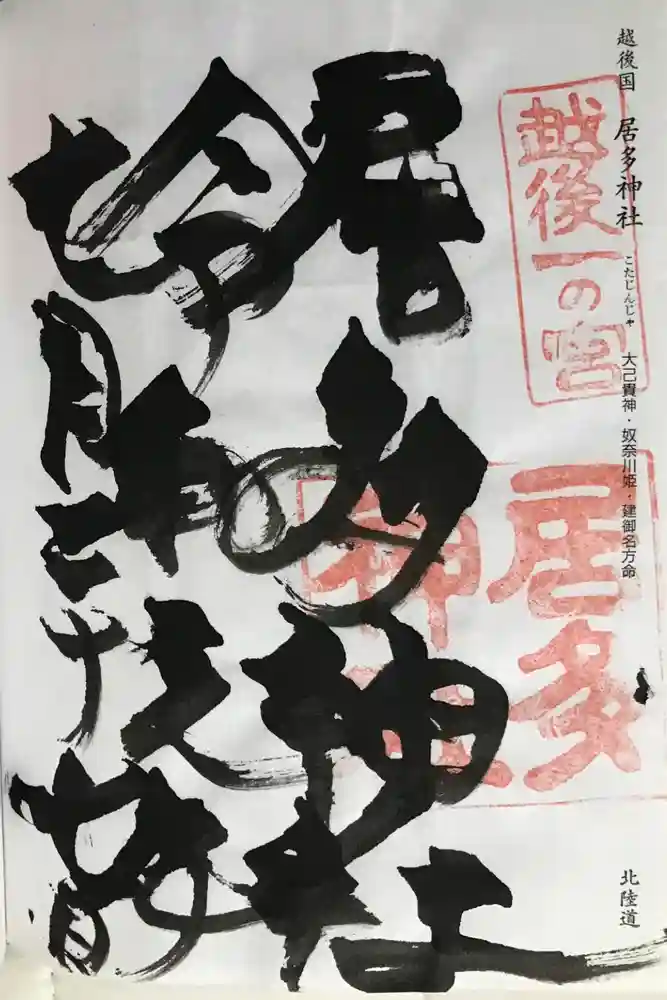 越後国 居多神社 こたじんじゃ 大己貴神・奴奈川姫・建御名方命 北陸道
越後一の宮
居多
神社
居多神社
令和元
七月二十